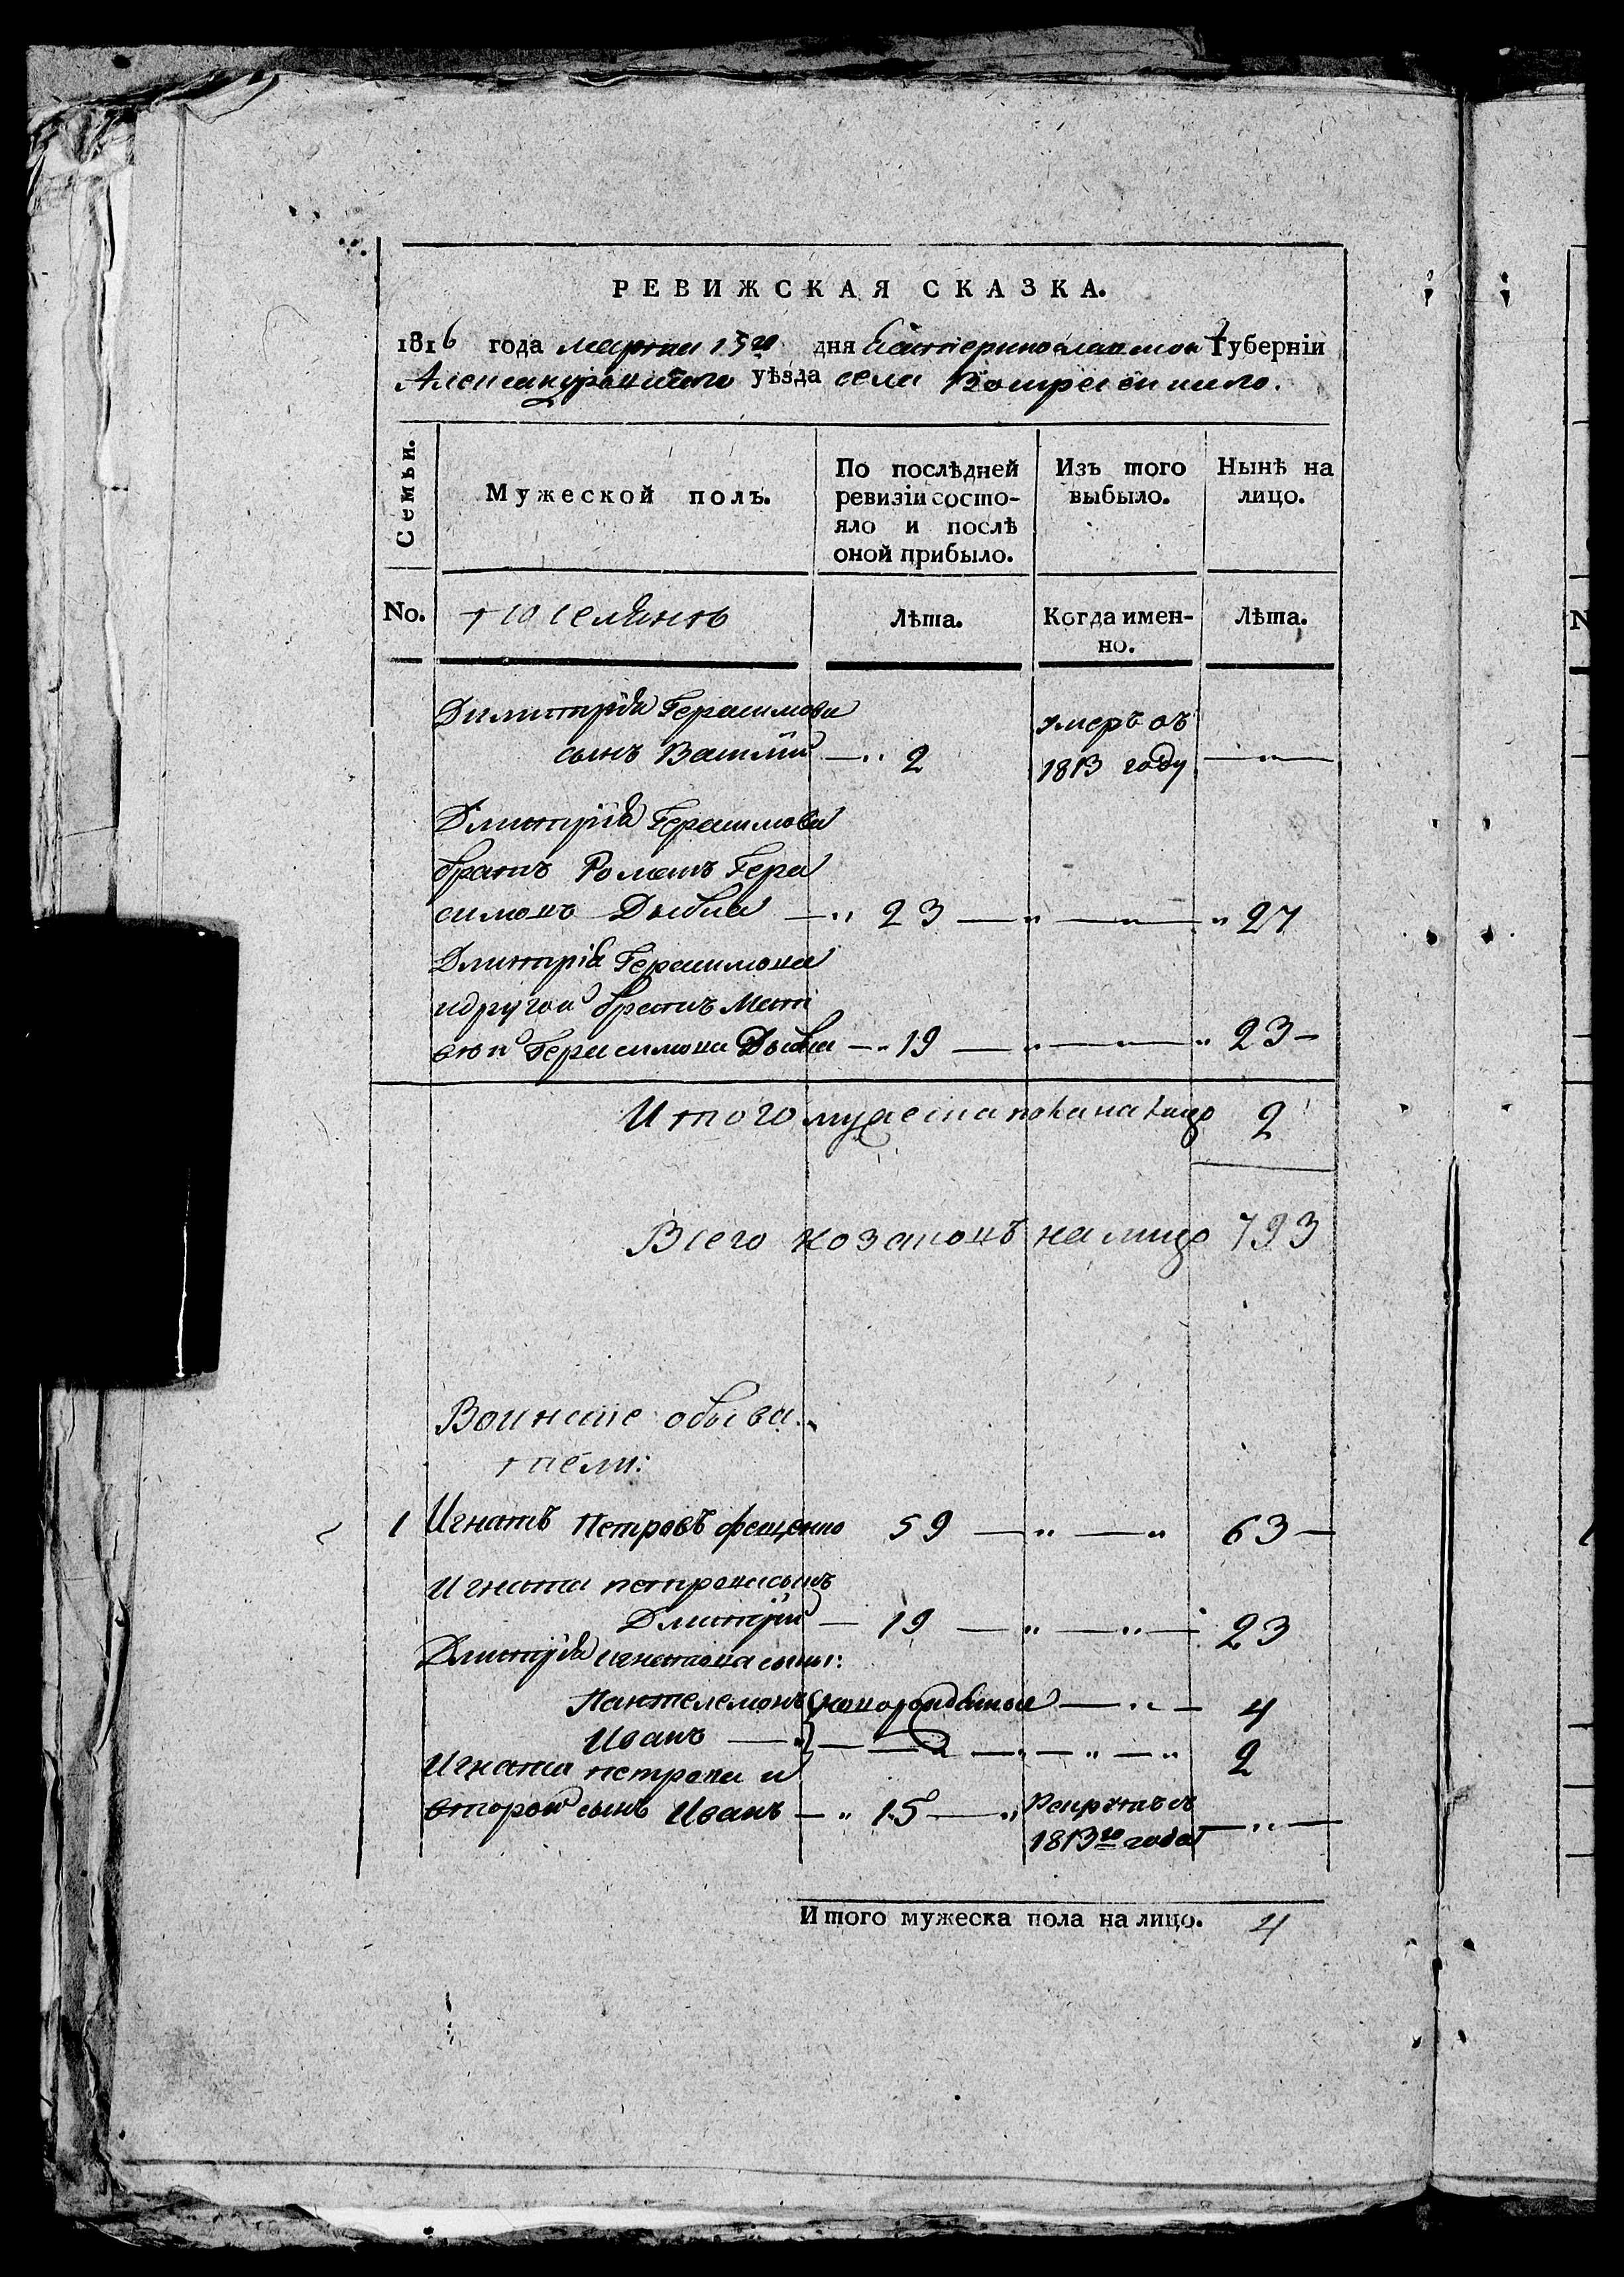 РЕВИЖСКАЯ СКАЗКА.
1816 года марта 15го дня Екатеринославской Губерніи
Александровского уѣзда села Воскресенкаго.
Семьи.
Мужеской полъ.
По послѣдней ревизіи состояло и послѣ оной прибыло.
Изъ того выбыло.
Нынѣ на лицо.
No.
поселянъ
Лѣта.
Когда именно.
Лѣта.
Димитрія Герасимова
сынъ Василій — 2 умеръ въ 1813 году —
Дмитрія Герасимова
братъ Романъ Гера
симовъ — 23 — 27
Дмитрія Герасимова
и другой братъ Мат
вѣй Герасимова — 19 — 23 —
Итого мужеска пола на лицо 2
Всего козаковъ на лицо 793
Воинскіе обыва
тели:
1 Игнатъ Петровъ Фещенко 59 — 63 —
Игната Петрова сынъ
Дмитрій — 19 — 23
Дмитрія Игнатова сыны:
Пантелемонъ новорожденные — 4
Иванъ — 2
Игната Петрова и
второй сынъ Иванъ — 15 — 1813го года —
Итого мужеска пола на лицо. 4